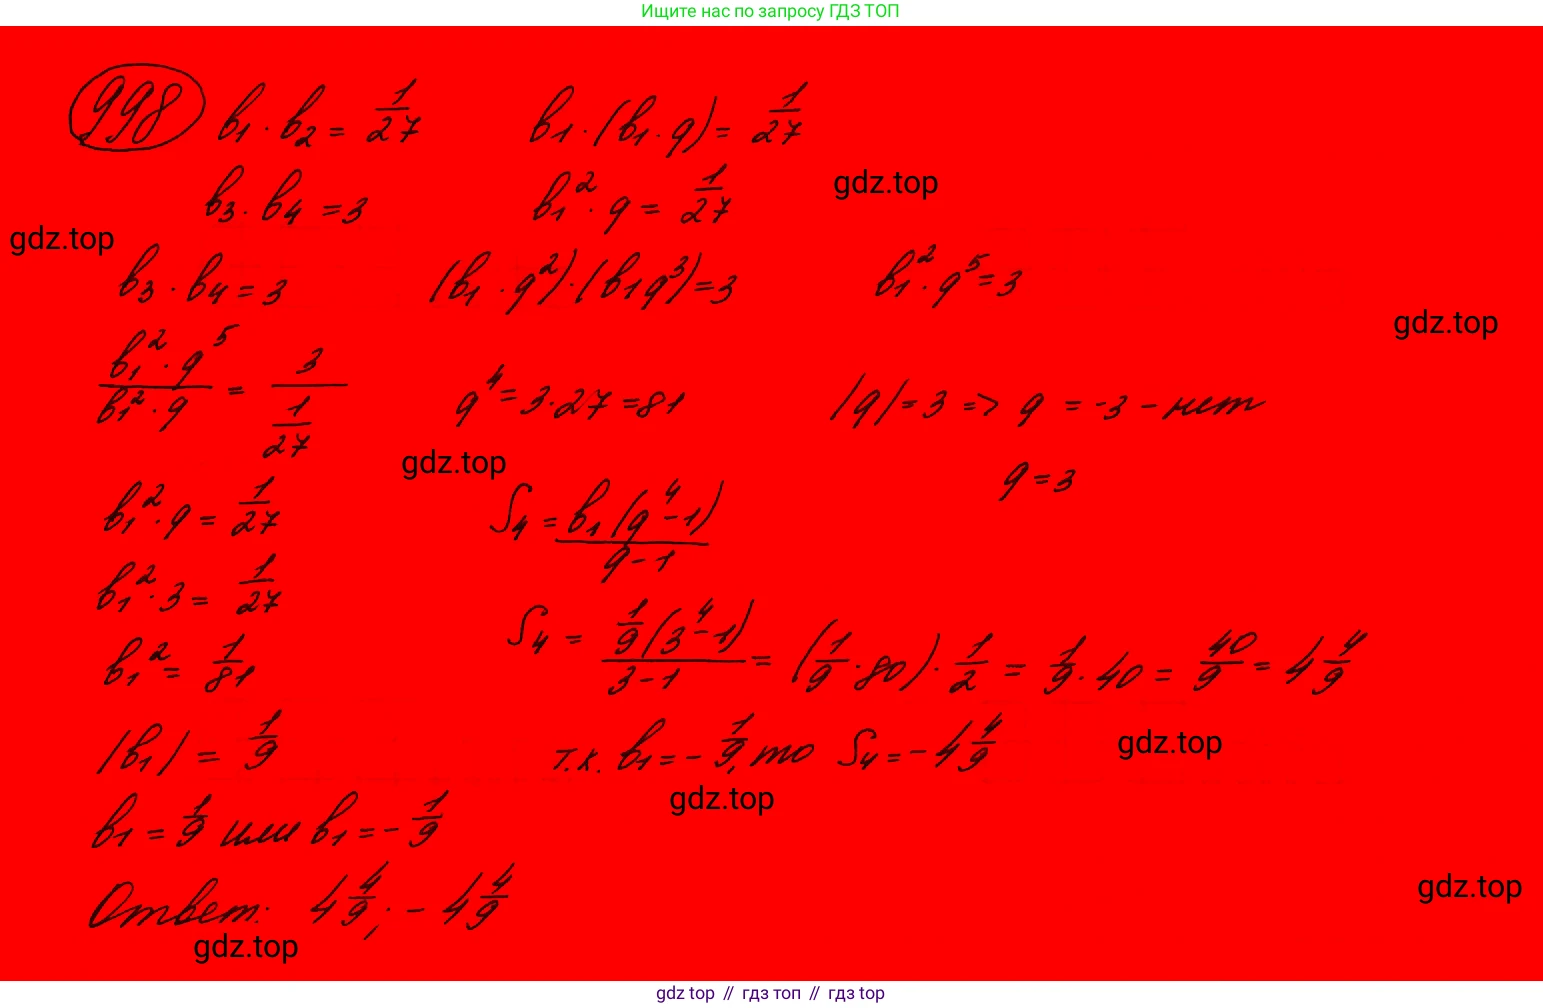 Ищите нас по запросу ГДЗ ТОП
998 b₁ · b₂ = 1/27 b₁ · (b₁ · q) = 1/27
b₃ · b₄ = 3 b₁² · q = 1/27
gdz.top
gdz.top
b₃ · b₄ = 3 (b₁ · q²) · (b₁q³) = 3 b₁² · q⁵ = 3
gdz.top
(b₁² · q⁵)/(b₁² · q) = 3/(1/27) q⁴ = 3 · 27 = 81 |q| = 3 => q = -3 - нет
gdz.top
q = 3
b₁² · q = 1/27 S₄ = b₁(q⁴ - 1)/(q - 1)
b₁² · 3 = 1/27
b₁² = 1/81 S₄ = 1/9(3⁴ - 1)/(3 - 1) = (1/9 · 80) · 1/2 = 1/9 · 40 = 40/9 = 4 4/9
|b₁| = 1/9 т.к. b₁ = - 1/9, то S₄ = - 4 4/9
gdz.top
gdz.top
b₁ = 1/9 или b₁ = - 1/9
gdz.top
Ответ: 4 4/9; - 4 4/9
gdz.top
gdz top // гдз топ // гдз top